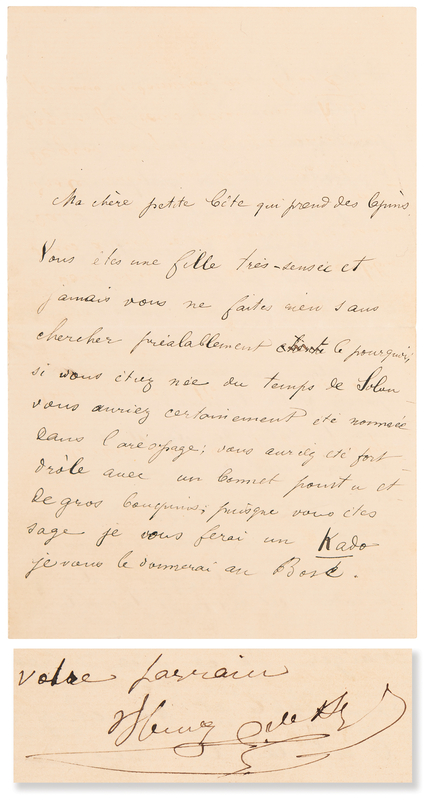 Ma chère petite Bête qui prend des lapins
Vous êtes une fille très-sensée et
jamais vous ne faites rien sans
chercher préalablement le pourquoi,
si vous étiez née du temps de Solon
vous auriez certainement été nommée
dans l'aréopage; vous auriez été fort
drôle avec un bonnet pointu et
de gros bouquins; puisque vous êtes
sage je vous ferai un Kado
je vous le donnerai au Bosc.
votre parrain
Henry de